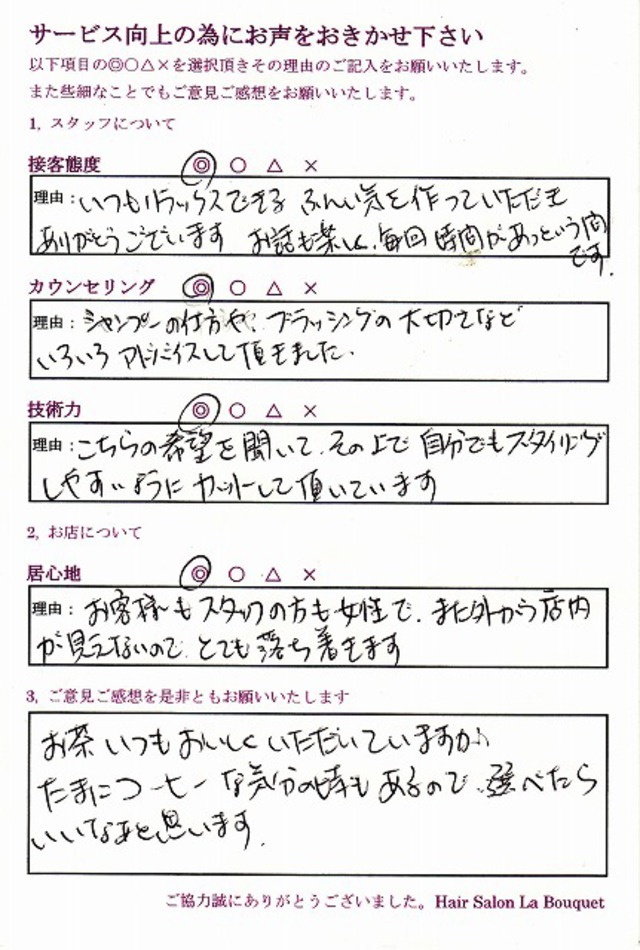 サービス向上の為にお声をおきかせ下さい
以下項目の◎○△×を選択頂きその理由のご記入をお願いいたします。
また些細なことでもご意見ご感想をお願いいたします。
1, スタッフについて
接客態度 ◎ ○ △ ×
理由:いつもリラックスできる ふんい気を作っていただき
ありがとうございます お話も楽しく、毎回 時間があっという間
です.
カウンセリング ◎ ○ △ ×
理由:シャンプーの仕方や、ブラッシングの大切さなど
いろいろ アドバイスして頂きました.
技術力 ◎ ○ △ ×
理由:こちらの希望を聞いて、その上で 自分でもスタイリング
しやすいように カットして頂いています
2, お店について
居心地 ◎ ○ △ ×
理由: お客様も スタッフの方も女性で、また外から店内
が見えないので、とても落ち着きます
3, ご意見ご感想を是非ともお願いいたします
お茶 いつもおいしく いただいていますが、
たまにコーヒーな気分の時も あるので、選べたら
いいなあと思います.
ご協力誠にありがとうございました。Hair Salon La Bouquet